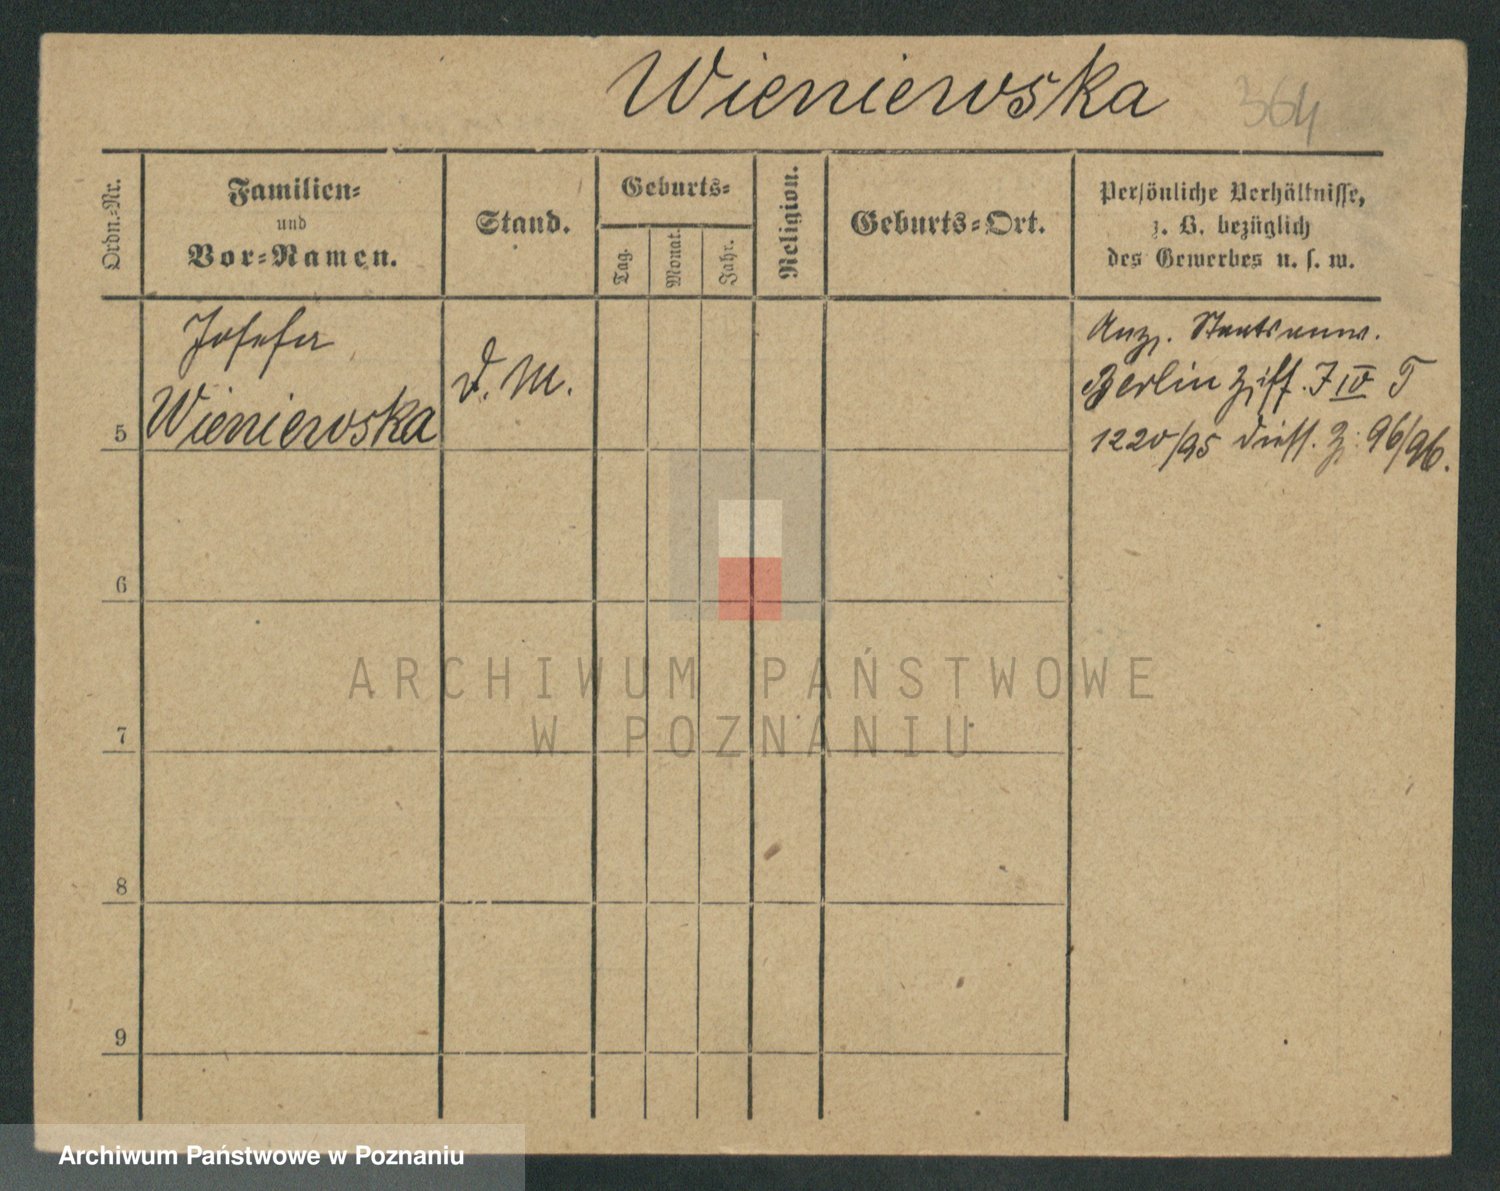 Wieniewska
364
Ordn.-Nr.
Familien-
und
Vor-Namen.
Stand.
Geburts-
Tag.
Monat.
Jahr.
Religion.
Geburts-Ort.
Persönliche Verhältnisse,
z. B. bezüglich
des Gewerbes u. s. w.
Josefa
Wieniewska
d. M.
Anz. Staatsanw.
Berlin Ziff. J IV T
1220/95 dies. Z: 96/96.
5
6
7
8
9
ARCHIWUM PAŃSTWOWE
W POZNANIU
Archiwum Państwowe w Poznaniu